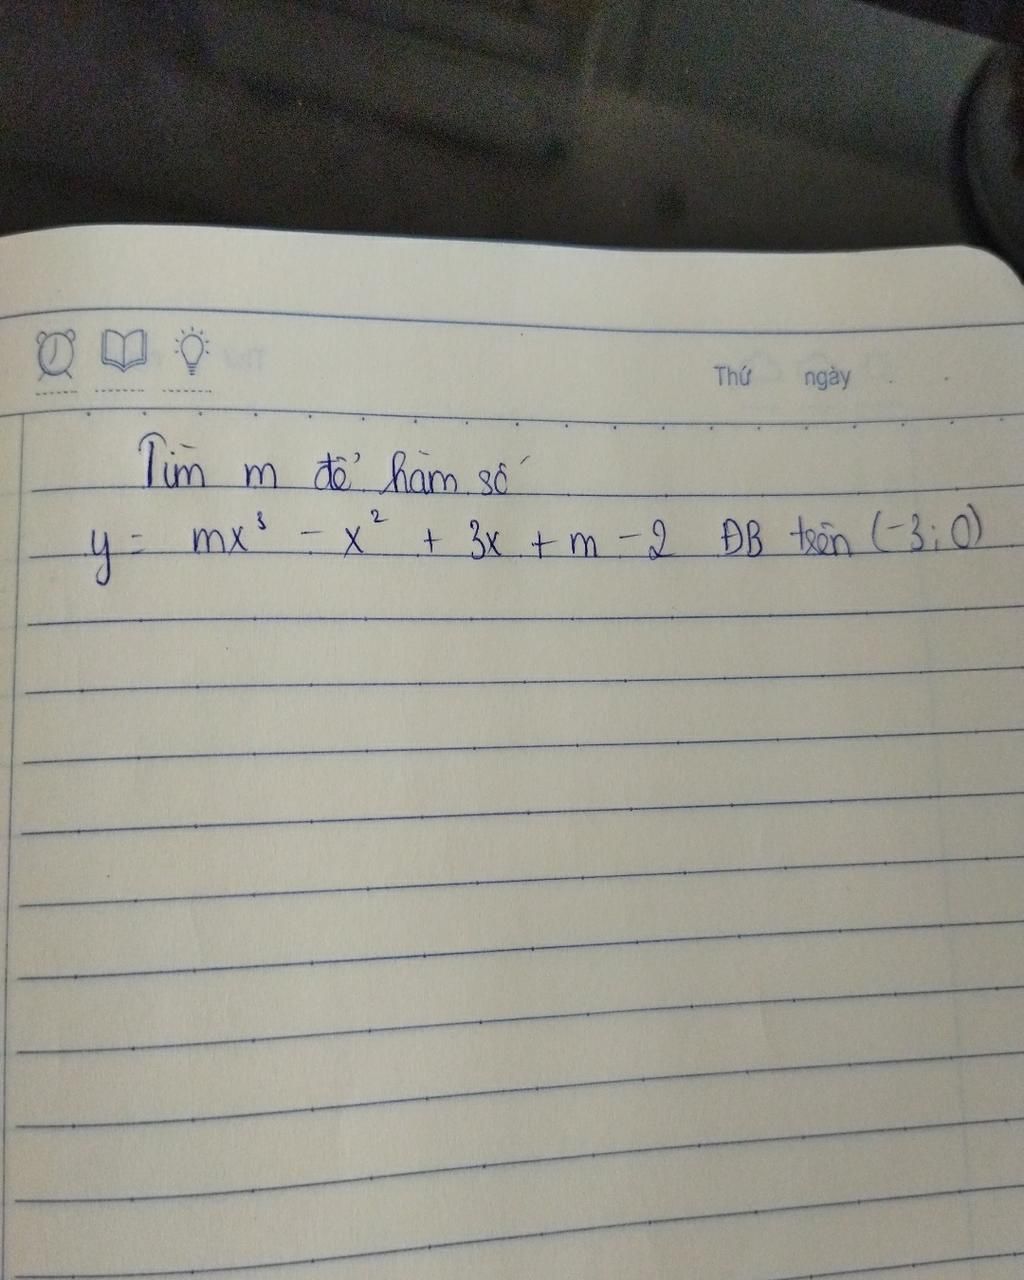 Thứ ngày
Tìm m để hàm số
y = mx³ - x² + 3x + m - 2 ĐB trên (-3; 0)